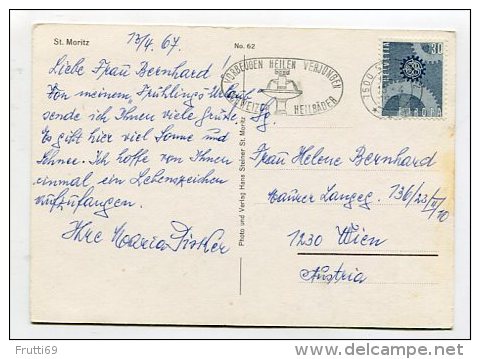 St. Moritz
13/4. 67.
No. 62
Liebe Frau Bernhard!
Von meinem Frühlings-Urlaub
sende ich Ihnen viele Grüße.
Es gibt hier viel Sonne und
Schnee. Ich hoffe von Ihnen
einmal ein Lebenszeichen
aufzufangen.
Ihre Maria Fischer
Photo und Verlag Hans Steiner St. Moritz
VORBEUGEN HEILEN VERJÜNGEN
HEILBÄDER
7500
HELVETIA
30
EUROPA
Sg.
Frau Helene Bernhard
Maurer Langeg. 136/23/II/10
1230 Wien
Austria
Frutti69
www.delcampe.net